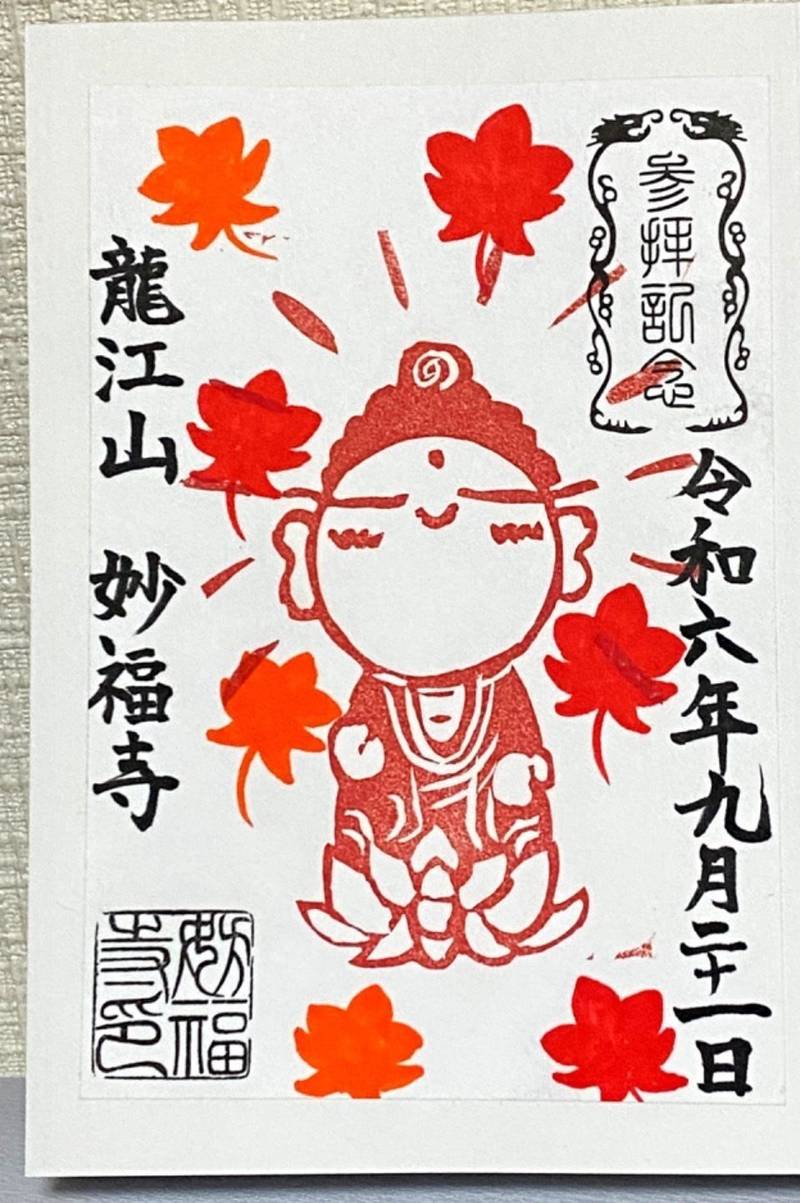 参拝記念
令和六年九月二十一日
龍江山 妙福寺
妙福寺印